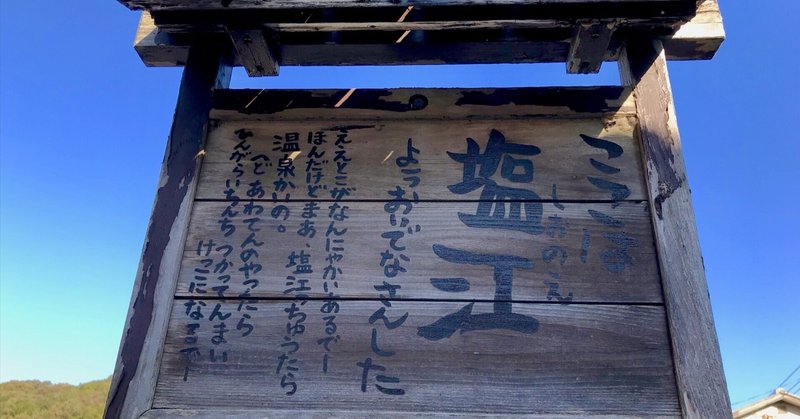 ここは
しおのえ
塩江
ようおいでなさんした
さええとこがなんにゃかいあるでー
ほんだけどまあ、塩江っちゅうたら
温泉かいの。
へどあわてんのやったら
ひんがらいちんち つかってんまい
けっこになるでー